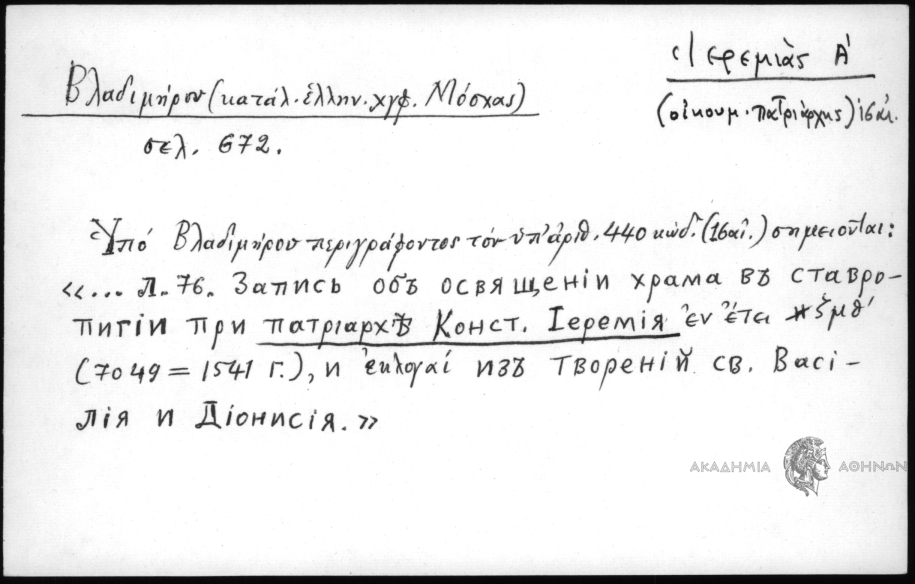 Ἱερεμιὰς Α´
Βλαδιμήρου (κατάλ. ἑλλην. χγφ. Μόσχας)
(οἰκουμ. πατριάρχης) ις´αἰ.
σελ. 672.
Ὑπό Βλαδιμήρου περιγράφοντος τόν ὑπ' ἀριθ. 440 κώδ. (16 αἰ.) σημειοῦται:
«... л. 76. Запись объ освященіи храма въ ставро-
пигіи при патриархѣ Конст. Іеремія ἐν ἔτει ζμθ´
(7049 = 1541 г.), и ἐκλογαί изъ твореній св. Васі-
лія и Діонисія.»
ΑΚΑΔΗΜΙΑ ΑΘΗΝΩΝ